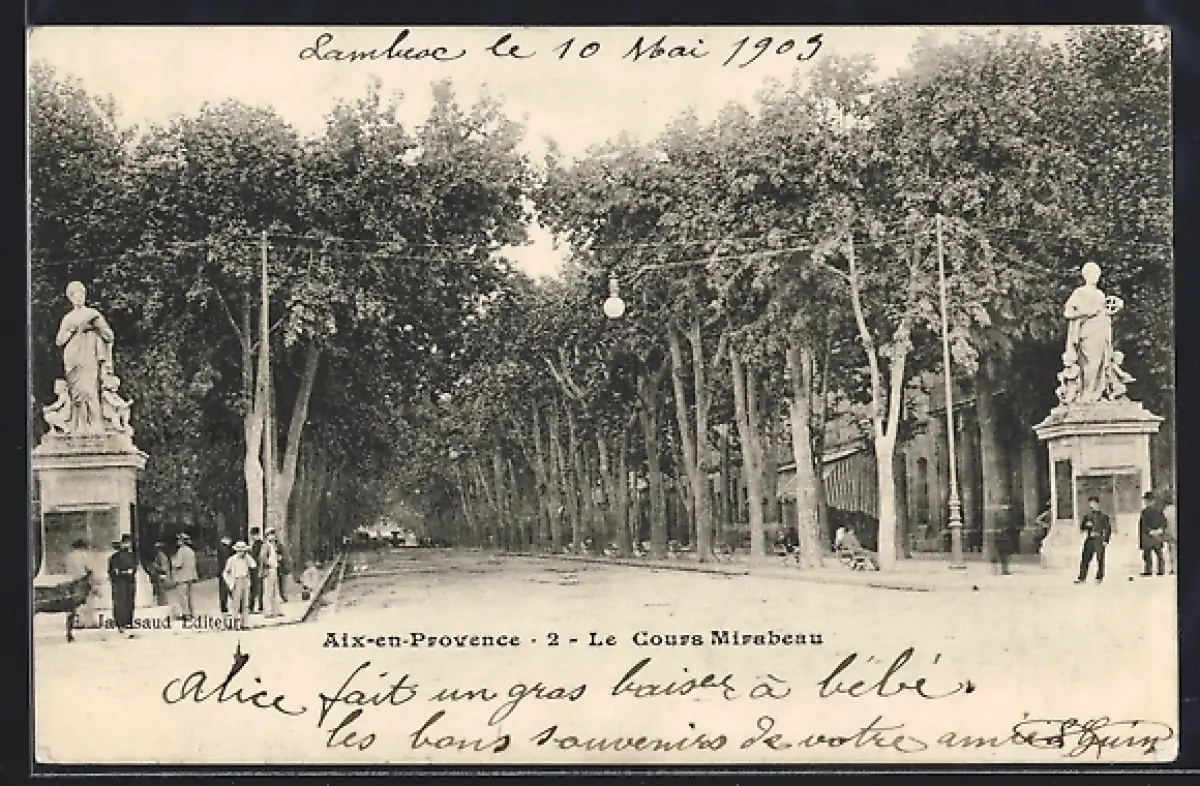 Lambesc le 10 Mai 1903
Editeur
Aix-en-Provence - 2 - Le Cours Mirabeau
Alice fait un gros baiser à bébé.
les bons souvenirs de votre amie